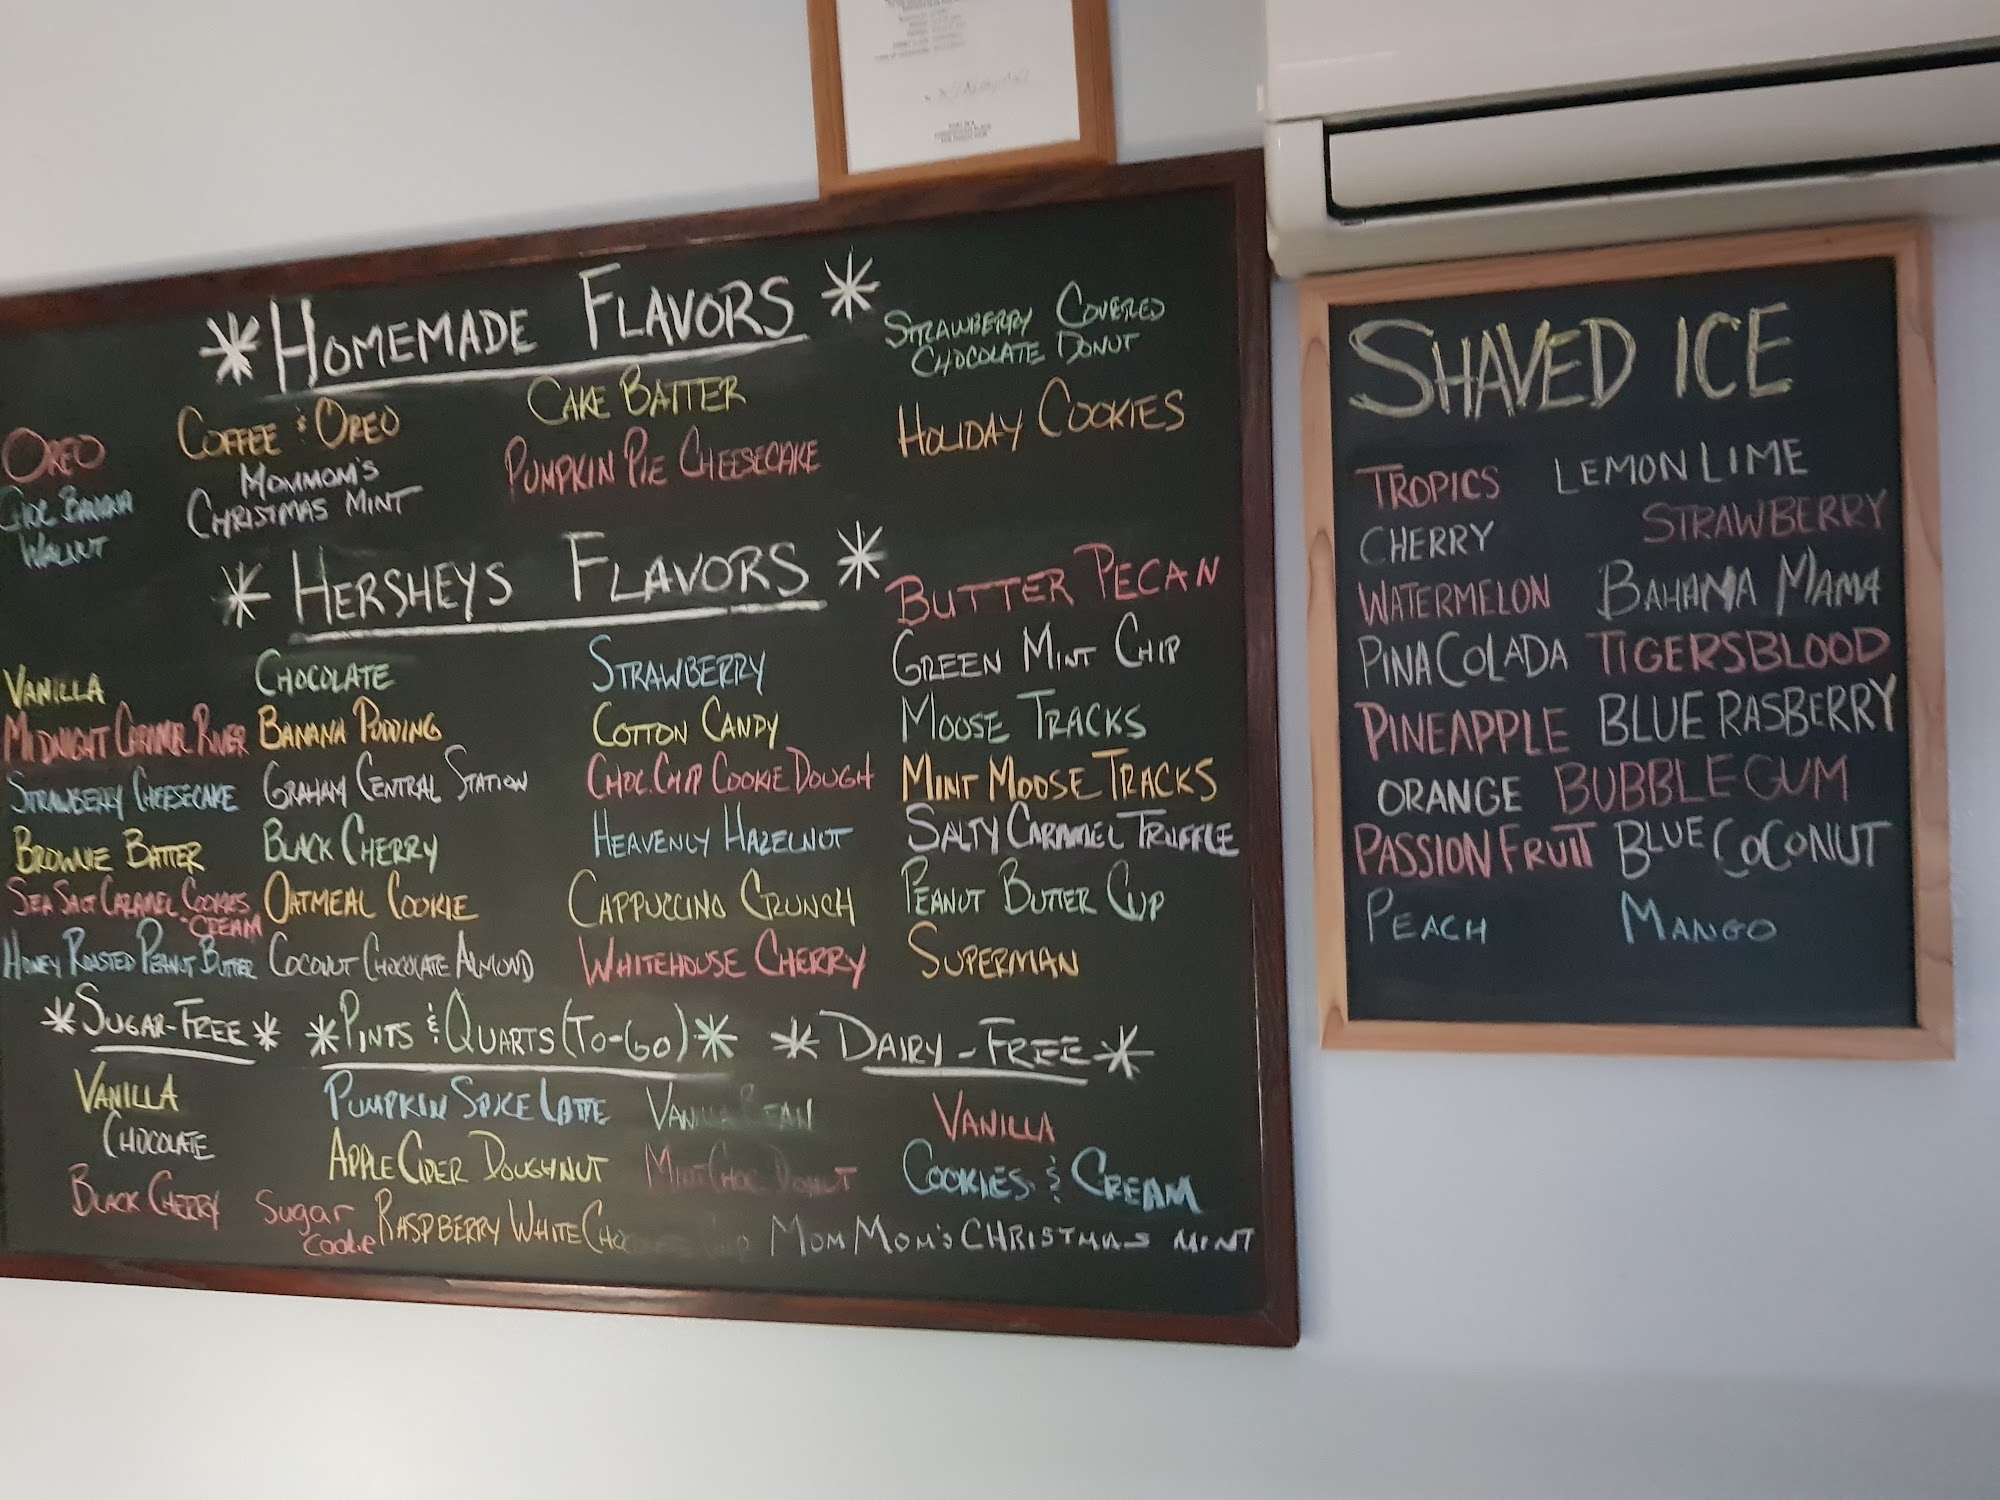 *HOMEMADE FLAVORS*
STRAWBERRY COVERED
CHOCOLATE DONUT
OREO
COFFEE & OREO
CAKE BATTER
HOLIDAY COOKIES
CHOC BANANA
WALNUT
MOMMOM'S
CHRISTMAS MINT
PUMPKIN PIE CHEESECAKE
*HERSHEYS FLAVORS*
VANILLA
CHOCOLATE
STRAWBERRY
BUTTER PECAN
MIDNIGHT CARAMEL RIVER
BANANA PUDDING
COTTON CANDY
GREEN MINT CHIP
STRAWBERRY CHEESECAKE
GRAHAM CENTRAL STATION
CHOC.CHIP COOKIE DOUGH
MOOSE TRACKS
BROWNIE BATTER
BLACK CHERRY
HEAVENLY HAZELNUT
MINT MOOSE TRACKS
SEA SALT CARAMEL COOKIES
CREAM
OATMEAL COOKIE
CAPPUCCINO CRUNCH
SALTY CARAMEL TRUFFLE
HONEY ROASTED PEANUT BUTTER
COCONUT CHOCOLATE ALMOND
WHITEHOUSE CHERRY
PEANUT BUTTER CUP
SUPERMAN
*SUGAR-FREE*
VANILLA
CHOCOLATE
BLACK CHERRY
*PINTS & QUARTS (TO-GO)*
PUMPKIN SPICE LATTE
VANILLA BEAN
APPLE CIDER DOUGHNUT
MINT CHOC DONUT
Sugar
Cookie
RASPBERRY WHITE
MOM MOM'S CHRISTMAS MINT
*DAIRY-FREE*
VANILLA
COOKIES & CREAM
SHAVED ICE
TROPICS
LEMON LIME
CHERRY
STRAWBERRY
WATERMELON
BAHAMA MAMA
PINA COLADA
TIGERSBLOOD
PINEAPPLE
BLUE RASBERRY
ORANGE
BUBBLE GUM
PASSION FRUIT
BLUE COCONUT
PEACH
MANGO